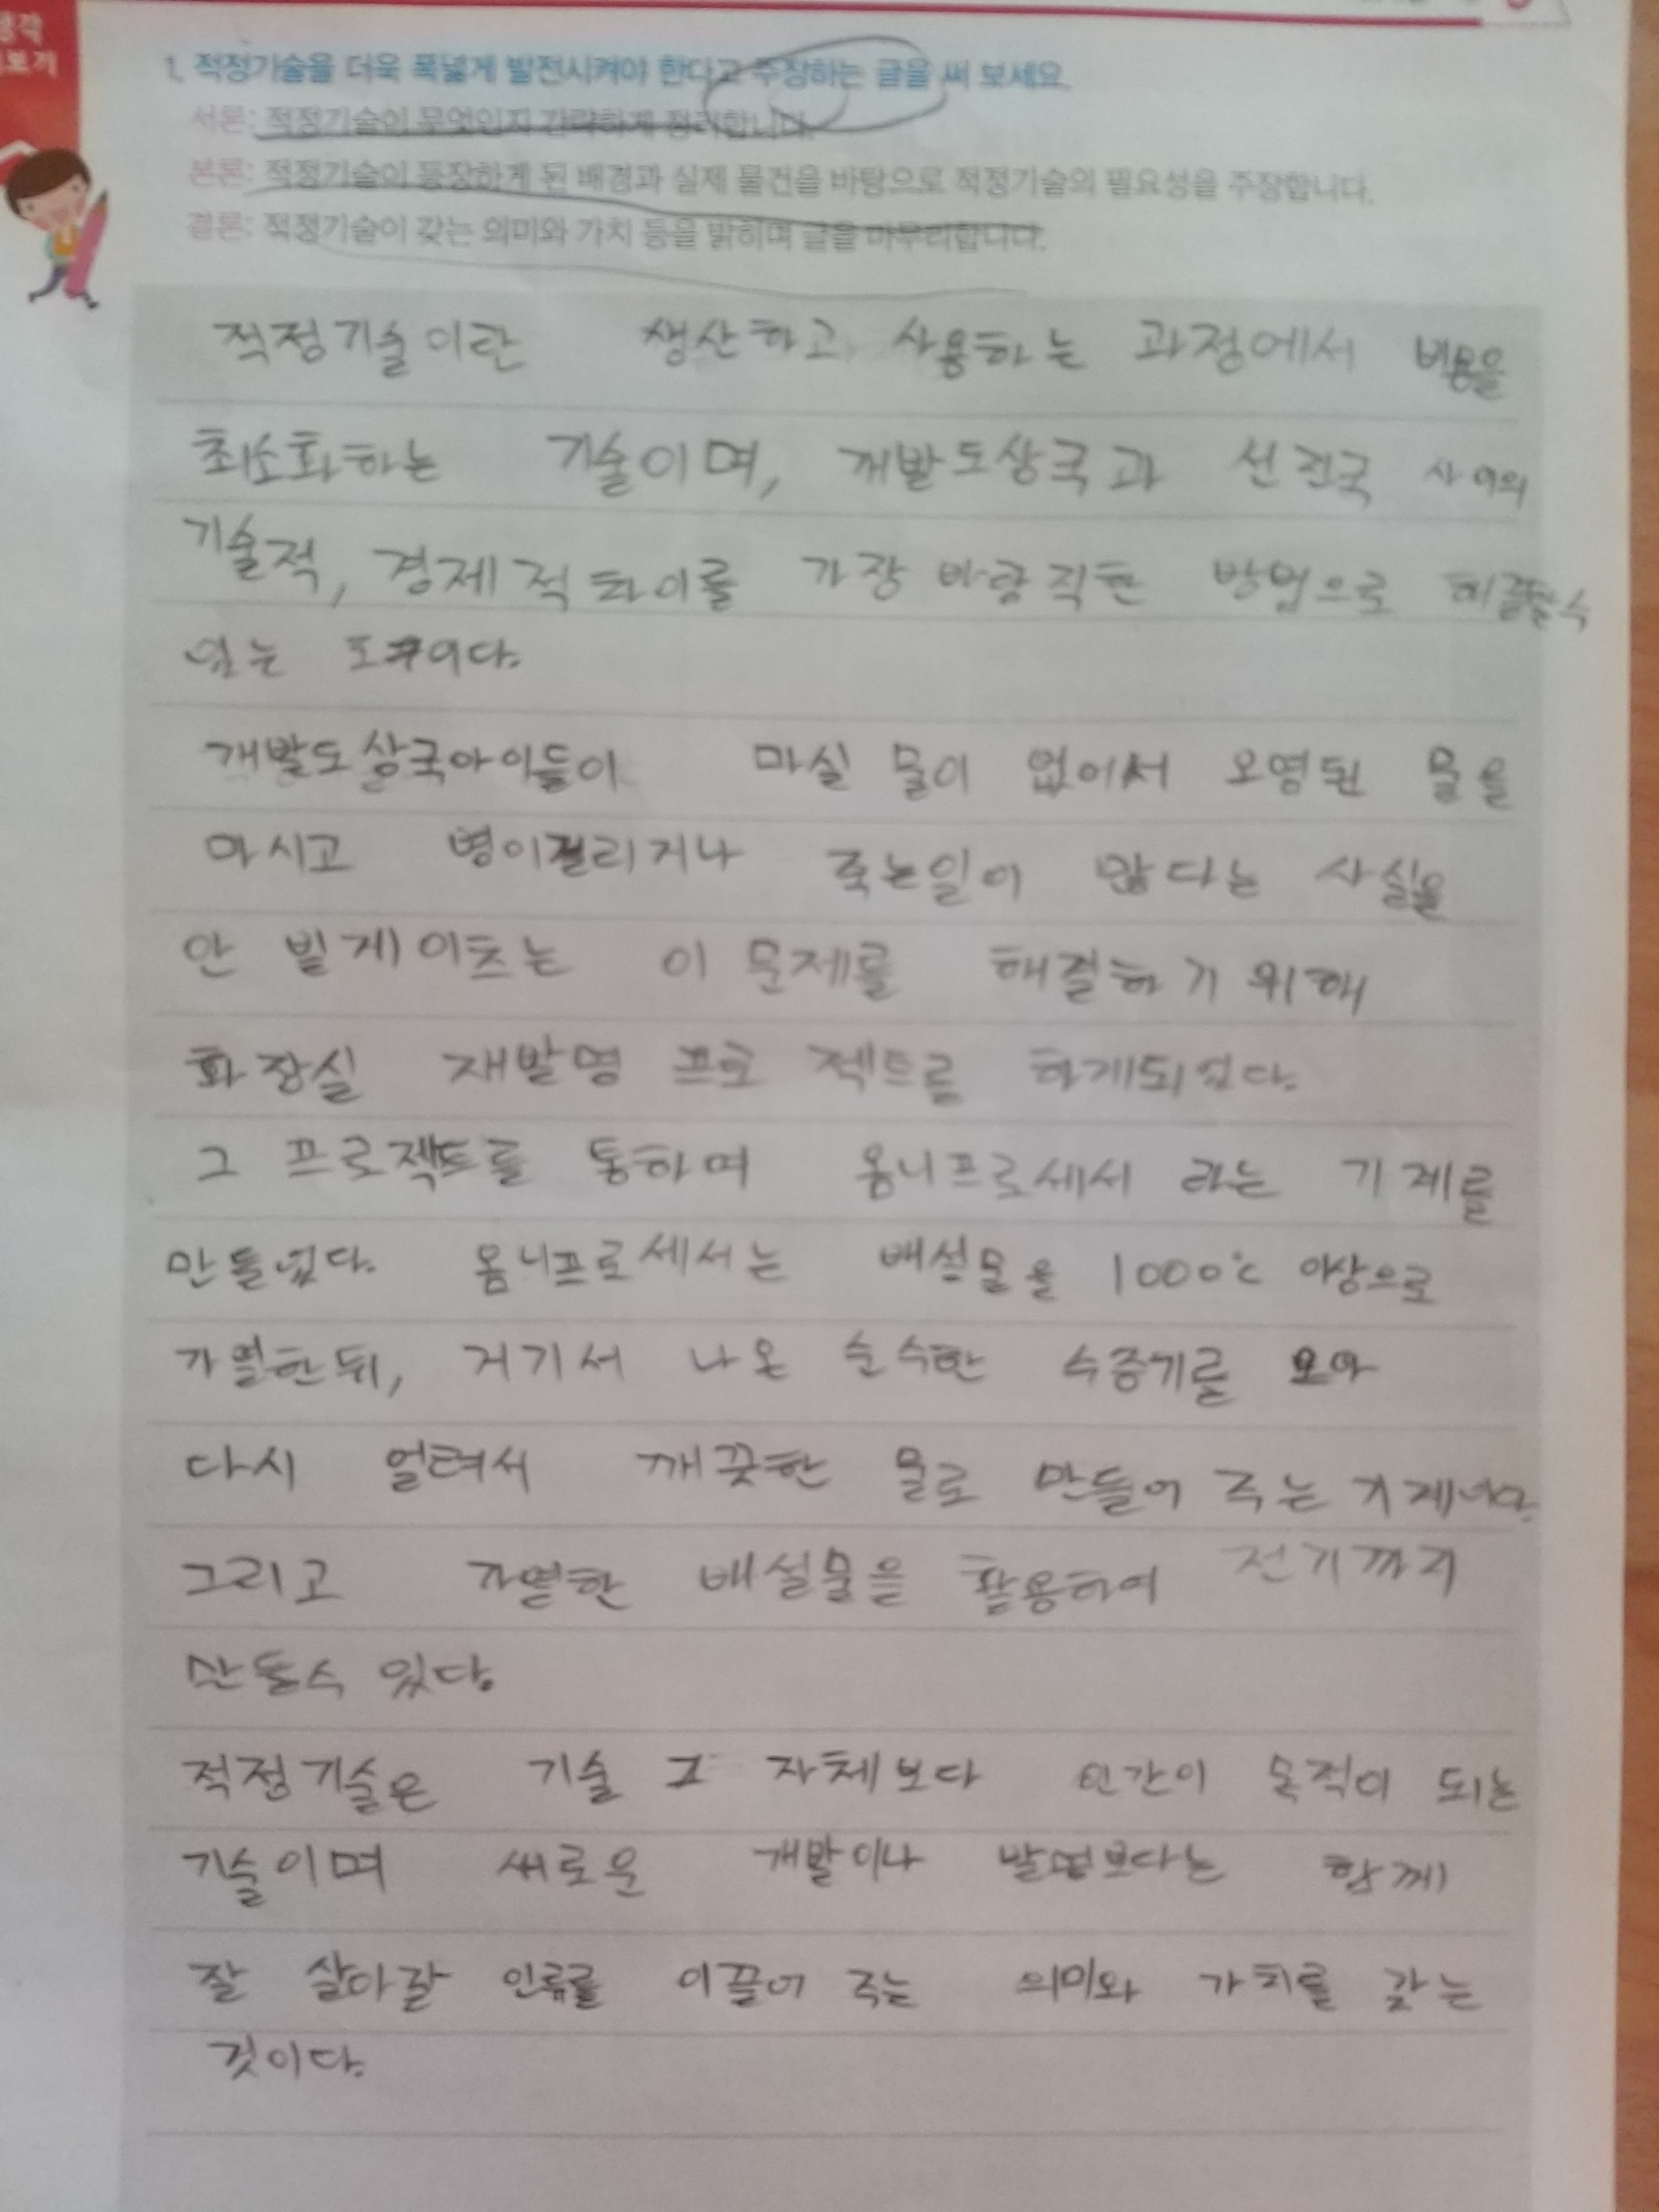 생각
보기
1. 적정기술을 더욱 폭넓게 발전시켜야 한다고 주장하는 글을 써 보세요.
서론: 적정기술이 무엇인지 간략하게 정리합니다.
본론: 적정기술이 등장하게 된 배경과 실제 물건을 바탕으로 적정기술의 필요성을 주장합니다.
결론: 적정기술이 갖는 의미와 가치 등을 밝히며 글을 마무리합니다.
적정기술이란 생산하고 사용하는 과정에서 비용을
최소화하는 기술이며, 개발도상국과 선진국 사이의
기술적, 경제적 차이를 가장 바람직한 방법으로 해결할수
있는 도구이다.
개발도상국아이들이 마실 물이 없어서 오염된 물을
마시고 병이걸리거나 죽는일이 많다는 사실을
안 빌게이츠는 이 문제를 해결하기 위해
화장실 재발명 프로젝트를 하게되었다.
그 프로젝트를 통하여 옴니프로세서 라는 기계를
만들었다. 옴니프로세서는 배설물을 1000℃ 이상으로
가열한뒤, 거기서 나온 순수한 수증기를 모아
다시 얼려서 깨끗한 물로 만들어 주는 기계이다.
그리고 가열한 배설물을 활용하여 전기까지
만들수 있다.
적정기술은 기술 그 자체보다 인간이 목적이 되는
기술이며 새로운 개발이나 발명보다는 함께
잘 살아갈 인류를 이끌어 주는 의미와 가치를 갖는
것이다.